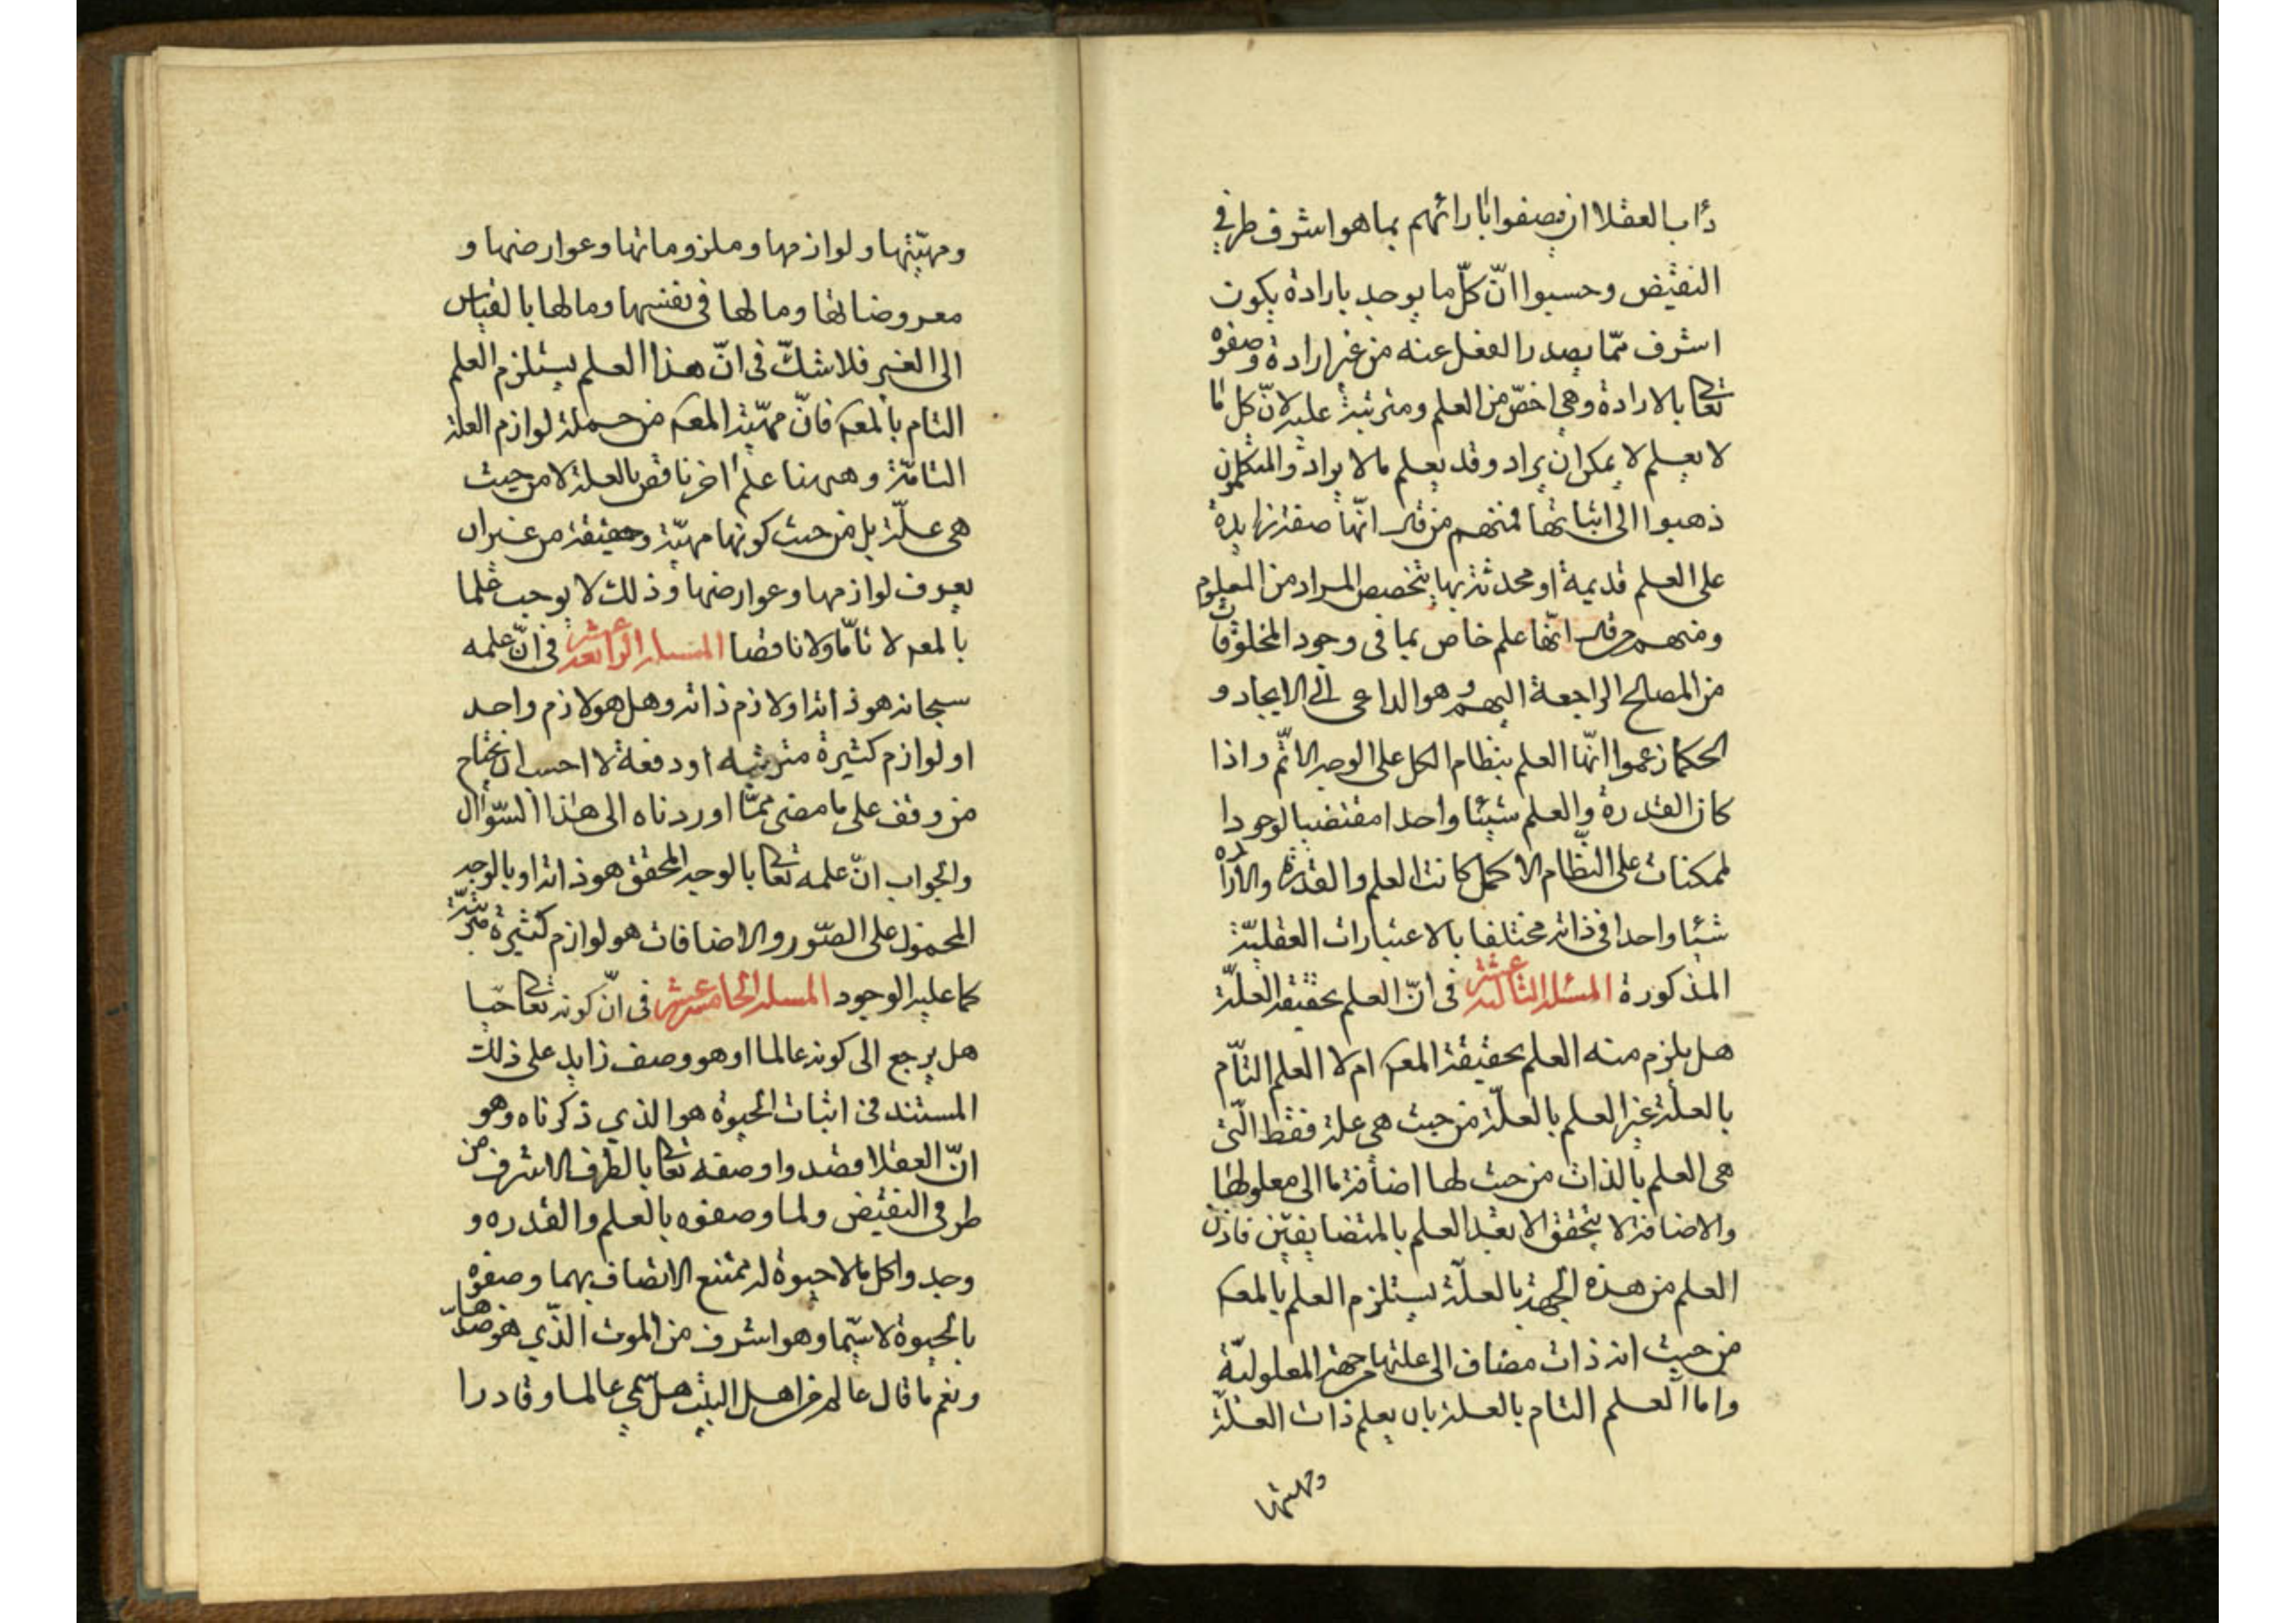 دأب العقلا ان يصفوا بارائهم بما هو اشرف طرفي
النقيض وحسبوا انّ كلّ ما يوجد بارادة يكون
اشرف ممّا يصدر الفعل عنه من غير ارادة وصفوه
تعالى بالارادة وهي اخصّ من العلم ومترتبة عليه لانّ كل ما
لا يعلم لا يمكن ان يراد وقد يعلم ما لا يراد والمتكلمون
ذهبوا الى اثباتها فمنهم من قال انّها صفة زايدة
على العلم قديمة او محدثة بها يتخصص المراد من المعلوم
ومنهم من قال انّها علم خاص بما فى وجود المخلوقات
من المصالح الراجعة اليهم وهو الداعى الى الايجاد و
الحكما زعموا انّها العلم بنظام الكل على الوجه الاتّم واذا
كان القدرة والعلم شيئا واحدا مقتضيا لوجود ا
لممكنات على النظام الاكمل كانت العلم والقدرة والاراده
شيئا واحدا فى ذاته مختلفا بالاعتبارات العقليّة
المذكورة المسئلة الثالثة عشر فى انّ العلم بحقيقة العلّة
هل يلزم منه العلم بحقيقة المعـ ام لا العلم التّام
بالعلّة غير العلم بالعلّة من حيث هى علة فقط الّتى
هى العلم بالذات من حيث لها اضافة ما الى معلولها
والاضافة لا يتحقق الا بعد العلم بالمتضايفين فاذن
العلم من هذه الجهة بالعلّة يستلزم العلم بالمعـ
من حيث انه ذات مضاف الى علتها من جهة المعلوليّة
واما العلم التام بالعلة بان يعلم ذات العلّة
ومهيتها
ومهيّتها ولوازمها وملزوماتها وعوارضها و
معروضاتها وما لها فى نفسها وما لها بالقياس
الى الغير فلا شكّ فى انّ هذا العلم يستلزم العلم
التام بالمعـ فانّ مهيّة المعـ من جملة لوازم العلة
التامّة وههنا علم اخر ناقص بالعلة لا من حيث
هى علّة بل من حيث كونها مهيّة وحقيقة من غير ان
يعرف لوازمها وعوارضها وذلك لا يوجب علما
بالمعـ لا تامّا ولا ناقصا المسئلة الرابعة عشر فى انّ علمه
سبحانه هو ذاته او لازم ذاته وهل هو لازم واحد
او لوازم كثيرة مترتبه او دفعة لا احسب ان يحتاج
من وقف على ما مضى ممّا اوردناه الى هذا السّؤال
والجواب انّ علمه تعالى بالوجه المحقق هو ذاته او بالوجه
المحمول على الصّور والاضافات هو لوازم كثيرة مترتبة
كما عليه الوجود المسئلة الخامسة عشر فى انّ كونه تعالى حيّا
هل يرجع الى كونه عالما او هو وصف زايد على ذلك
المستند فى اثبات الحيوة هو الذي ذكرناه وهو
انّ العقلا قصدوا وصفه تعالى بالطرف الاشرف من
طرفى النقيض ولما وصفوه بالعلم والقدره و
وجدوا كل ما لا حيوة له ممتنع الاتصاف بهما وصفوه
بالحيوة لا سيّما وهو اشرف من الموت الّذي هو ضدّها
ونعم ما قال عالم من اهل البيت هل سمّي عالما وقادرا